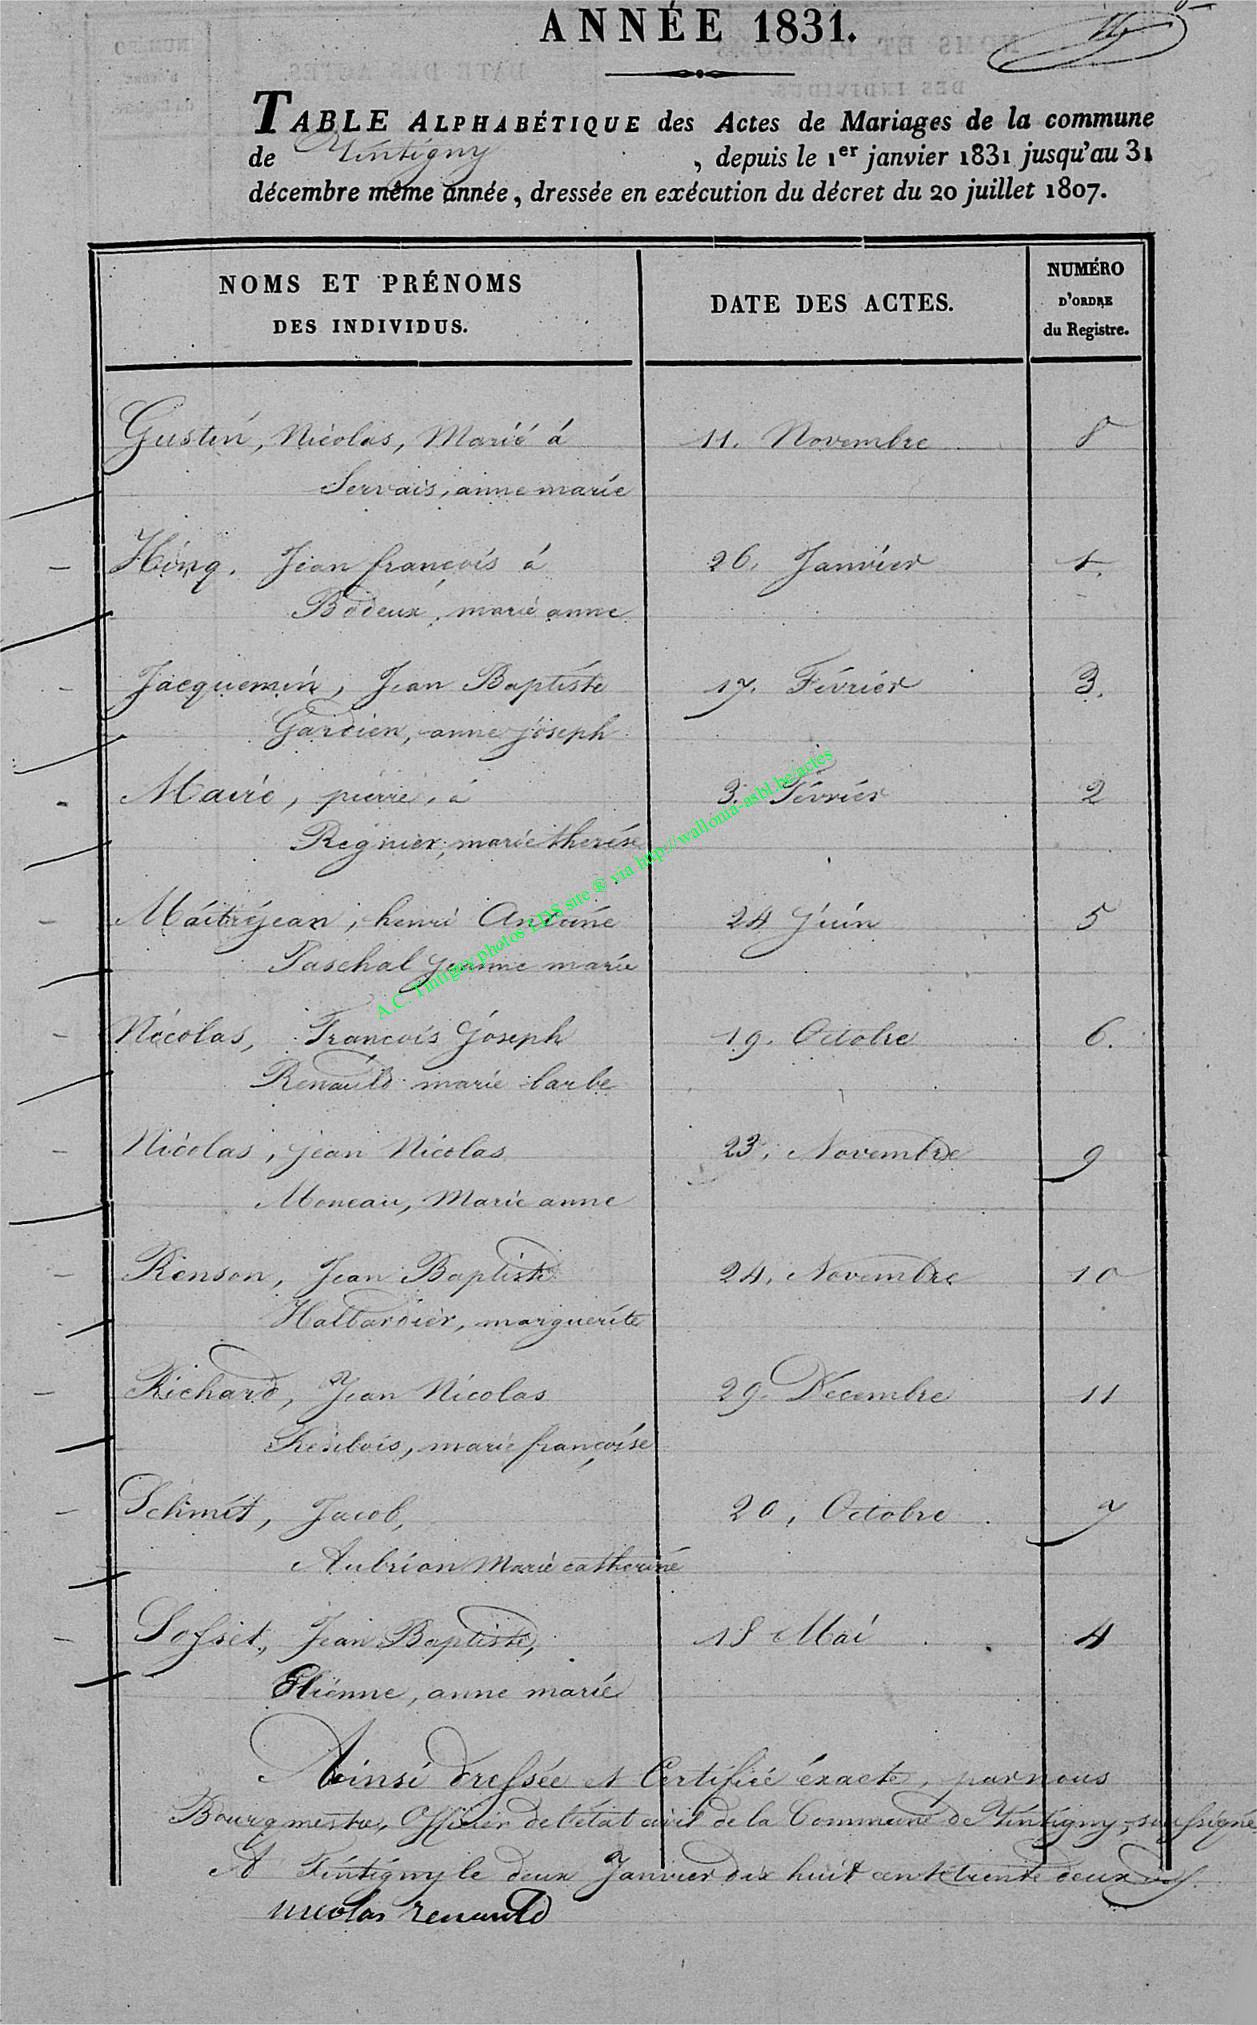 ANNÉE 1831.
TABLE ALPHABÉTIQUE des Actes de Mariages de la commune
de Tintigny , depuis le 1er janvier 1831 jusqu'au 31
décembre même année, dressée en exécution du décret du 20 juillet 1807.
NOMS ET PRÉNOMS
DES INDIVIDUS.
DATE DES ACTES.
NUMÉRO
D'ORDRE
du Registre.
Gustin, Nicolas, Marié á 11. Novembre 8
Servais, anne marie
Hinq. Jean françois á 26. Janvier 1.
Bodeux, marie anne
Jacquemin, Jean Baptiste 17. Février 3.
Gardien, anne joseph
Mairé, pierre, á 3. Février 2
Regnier, marie therése
Maitrejean, henri Antoine 24 Juin 5
Paschal jeanne marie
Nicolas, François Joseph 19. Octobre 6.
Renauld marie barbe
Nicolas, jean Nicolas 23. Novembre 9
Moneau, Marie anne
Renson, Jean Baptiste 24. Novembre 10
Halbardier, marguerite
Richard, Jean Nicolas 29. Decembre 11
marie françoise
Schmit, Jacob, 20, Octobre 7
Aubrion Marie catherine
Sosset, Jean Baptiste, 18 Mai 4
Etienne, anne marie
Ainsi dressée et Certifiée éxacte, par nous
Bourgmestre, Officier de l'état civil de la Commune de Tintigny, soussigné
A Tintigny le deux Janvier dix huit cent trente deux
nicolas renauld
A.C. Tintigny photos LDS site ® via http://walloma-asbl.be/actes